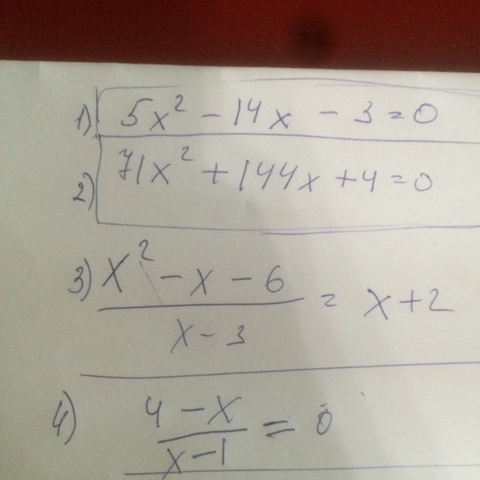 1) 5x² - 14x - 3 = 0
2) 71x² + 144x + 4 = 0
3) x² - x - 6
x - 3
= x + 2
4) 4 - x
x - 1
= 0